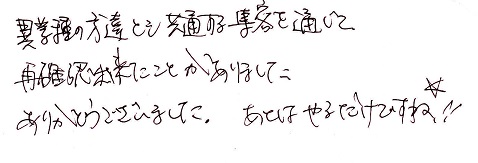 異業種の方達とも共通する集客を通して
再確認出来たことがありました
ありがとうございました。 あとはやるだけですね☆!!